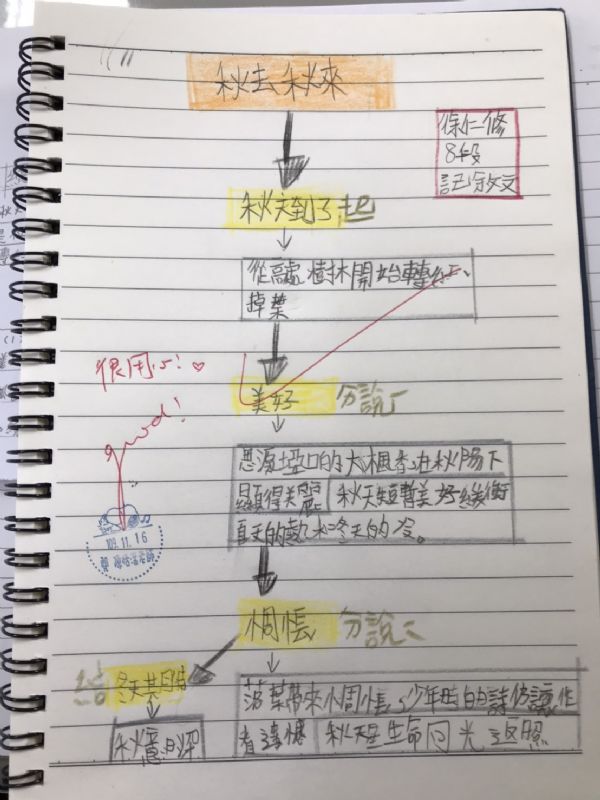 秋去秋來
徐仁修
8段
記敘文
秋天到了 起
從高處樹林開始轉紅、
掉葉
很用心!♡
good!
美好 分說一
恩源埡口的大楓香在秋陽下
顯得美麗 秋天短暫美好緩衝
夏天的熱和冬天的冷。
109.11.16
惆悵 分說二
結 冬天其日
落葉帶來惆悵、少年時的詩仿讓作
者遺憾 秋天是生命回光返照
秋意日深